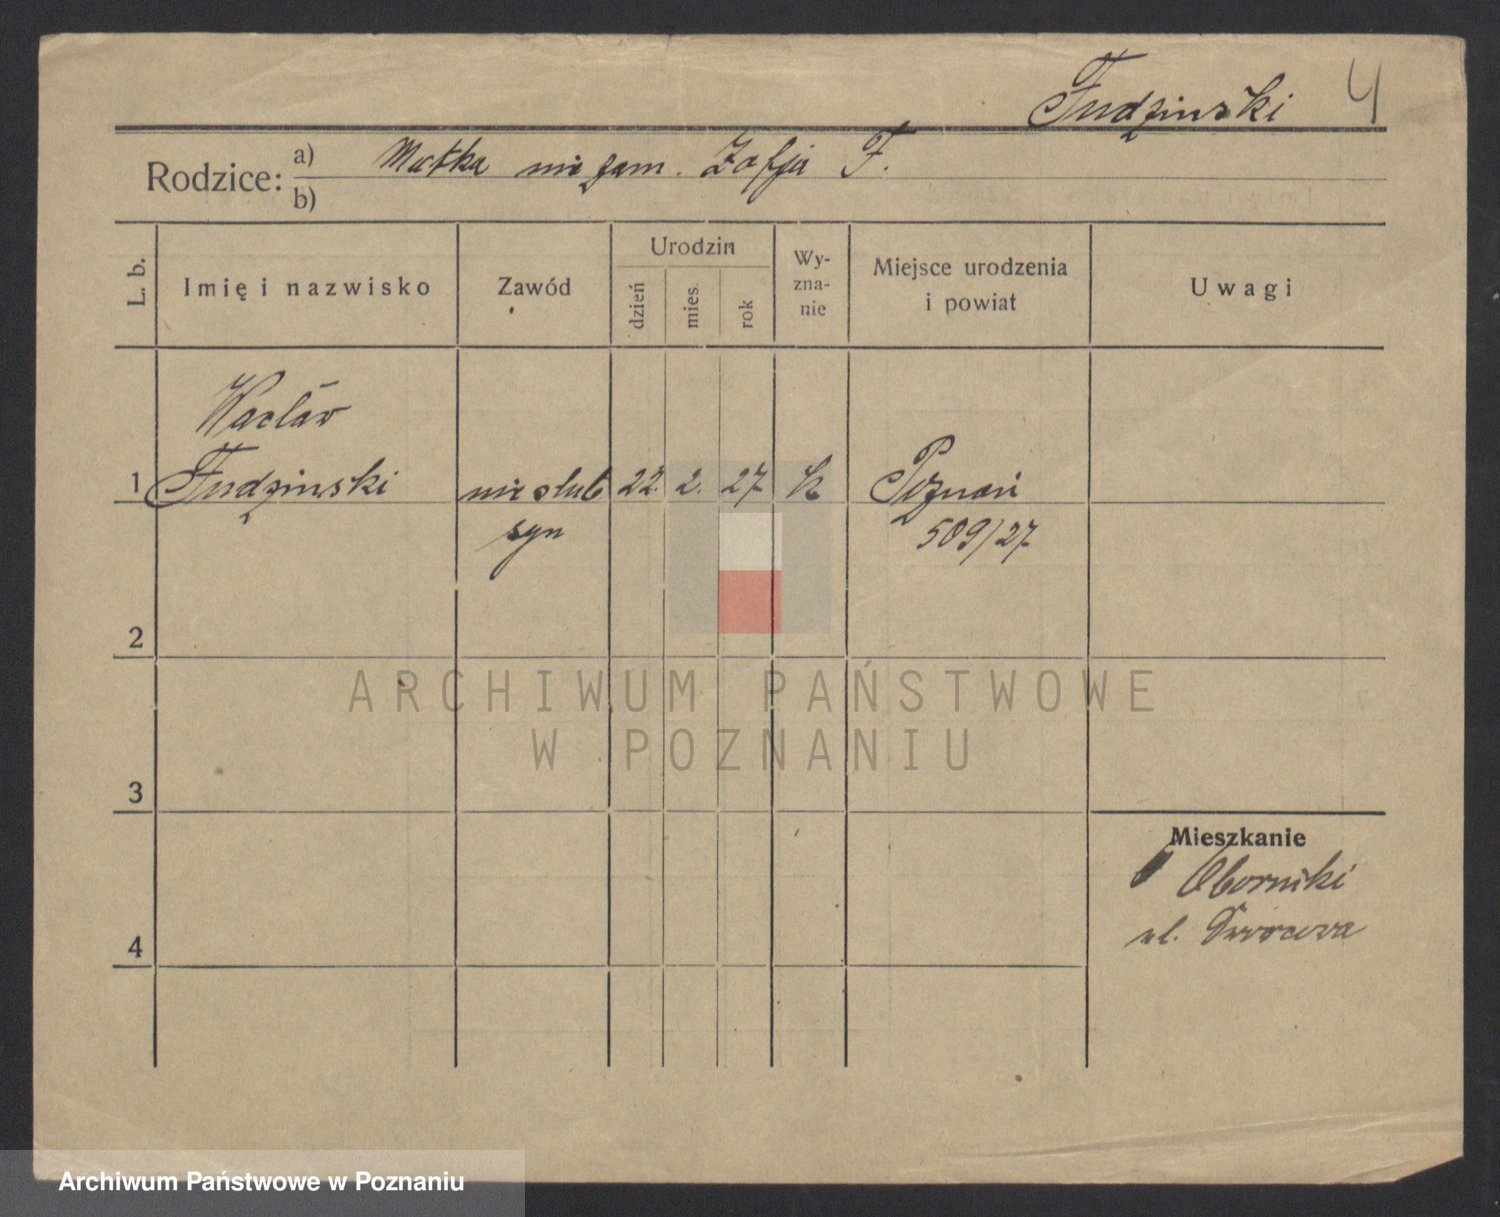 Fudzinski 4
Rodzice: a) Matka nie zam. Zofja F.
b)
L. b. Imię i nazwisko Zawód Urodzin dzień mies. rok Wy-zna-nie Miejsce urodzenia i powiat Uwagi
Wacław
1 Fudzinski nieslub 22. 2. 27 k Poznań
syn 509/27
2
3
Mieszkanie
Oborniki
ul. Dworcowa
4
ARCHIWUM PAŃSTWOWE
W POZNANIU
Archiwum Państwowe w Poznaniu